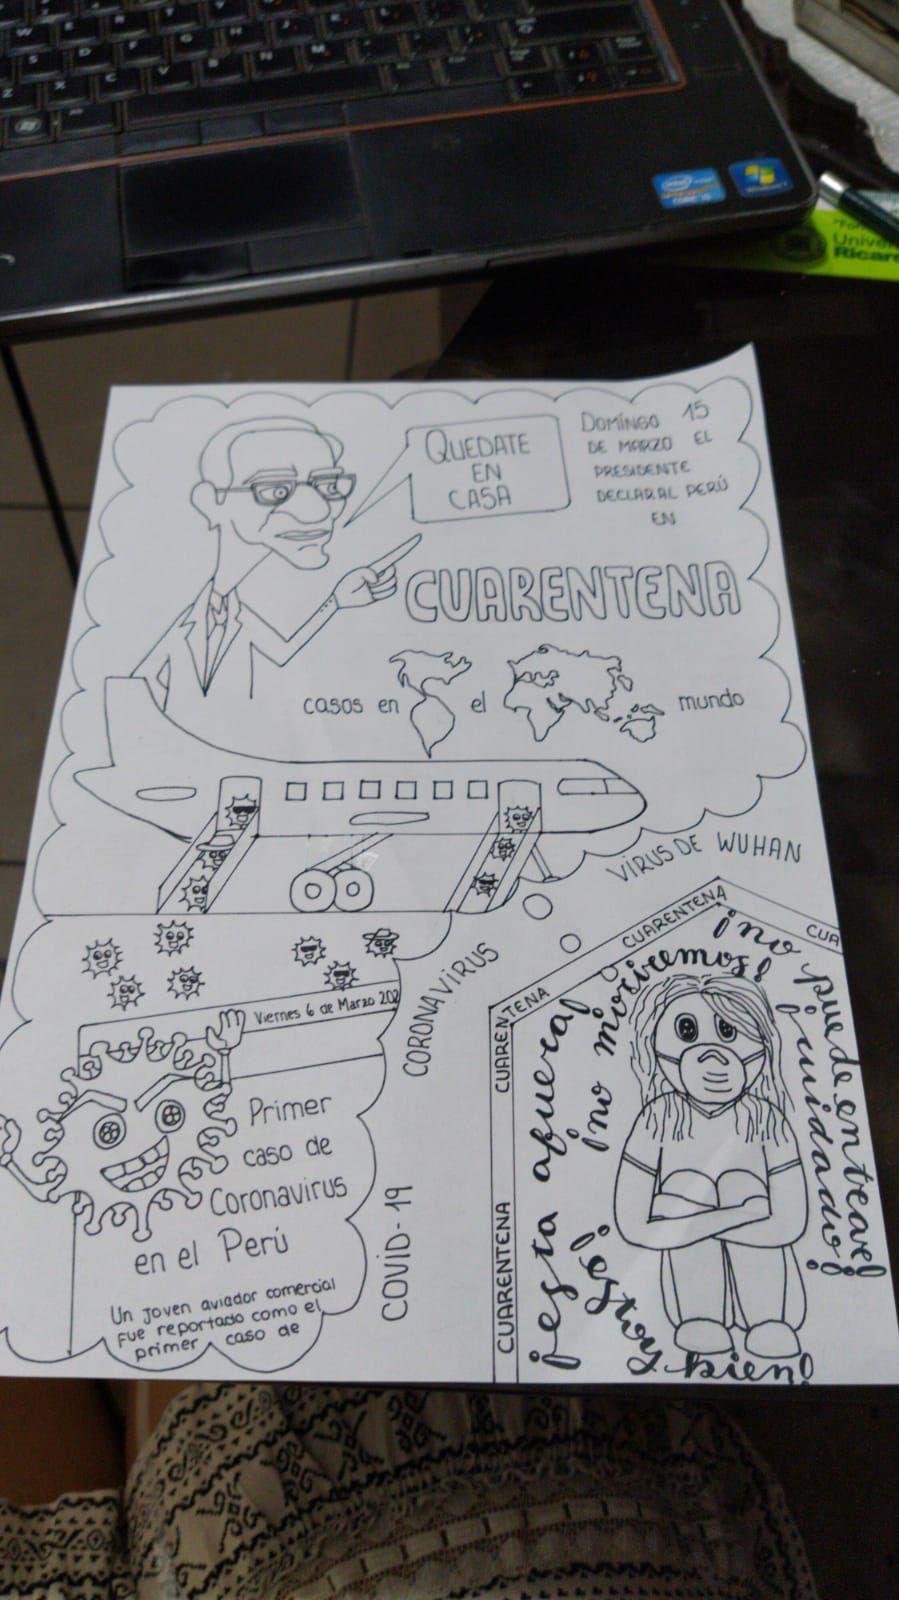 QUEDATE
EN
CASA
DOMINGO 15
DE MARZO EL
PRESIDENTE
DECLARAL PERÚ
EN
CUARENTENA
casos en el mundo
VIRUS DE WUHAN
CORONAVIRUS
COVID-19
Viernes 6 de Marzo 202
Primer
caso de
Coronavirus
en el Perú
Un joven aviador comercial
fue reportado como el
primer caso de
CUARENTENA
CUARENTENA
CUARENTENA
CUARENTENA
CUA
¡no puede entrar!
¡cuidado!
¡no moriremos!
¡no
¡esta afuera!
¡estoy bien!
intel
CORE i5
Windows 7
Univer
Ricar